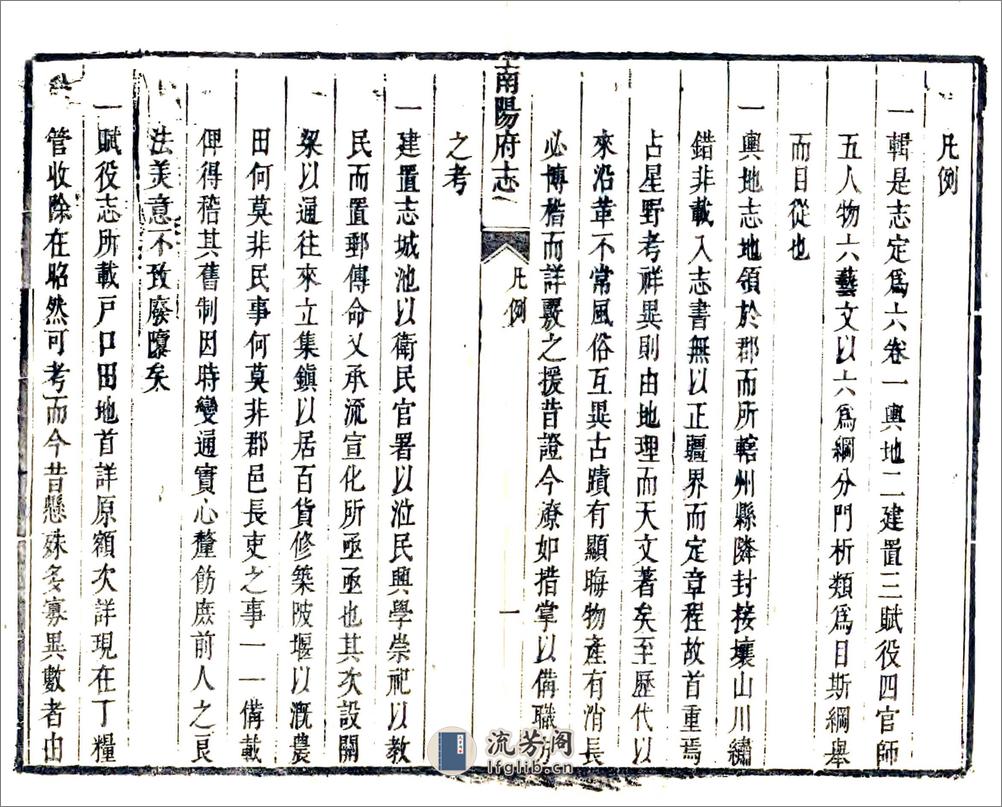 凡例
一輯是志定爲六卷一輿地二建置三賦役四官師
五人物六藝文以六爲綱分門析類爲目斯綱舉
而目從也
一輿地志地領於郡而所轄州縣隣封接壤山川繡
錯非載入志書無以正疆界而定章程故首重焉
占星野考祥異則由地理而天文著矣至歷代以
來沿革不常風俗互異古蹟有顯晦物產有消長
必博稽而詳覈之援昔證今瞭如措掌以備職方
之考
南陽府志
凡例
一
一建置志城池以衛民官署以涖民興學崇祀以教
民而置郵傳命又承流宣化所亟亟也其次設關
梁以通往來立集鎮以居百貨修築陂堰以漑農
田何莫非民事何莫非郡邑長吏之事一一備載
俾得稽其舊制因時變通實心釐飭庶前人之良
法美意不致廢墮矣
一賦役志所載戸口田地首詳原額次詳現在丁糧
管收除在昭然可考而今昔懸殊多寡異數者由
流芳阁
lfglib.cn